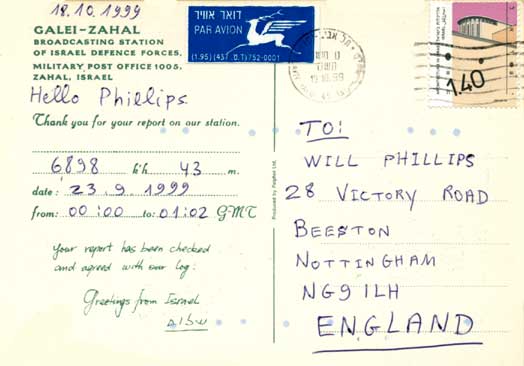 18.10.1999
GALEI-ZAHAL
BROADCASTING STATION
OF ISRAEL DEFENCE FORCES,
MILITARY POST OFFICE 1005.
ZAHAL, ISRAEL
Hello Phillips
Thank you for your report on our station.
6898 kh 43 m.
date: 23.9.1999
from: 00:00 to: 01:02 GMT
Your report has been checked
and agreed with our log.
Greetings from Israel
שלום
דואר אוויר
PAR AVION
(1.95) (457 .ט.ד) 752-0001
Produced by Palphot Ltd.
19.10.99
1.40
TO:
WILL PHILLIPS
28 VICTORY ROAD
BEESTON
NOTTINGHAM
NG9 1LH
ENGLAND